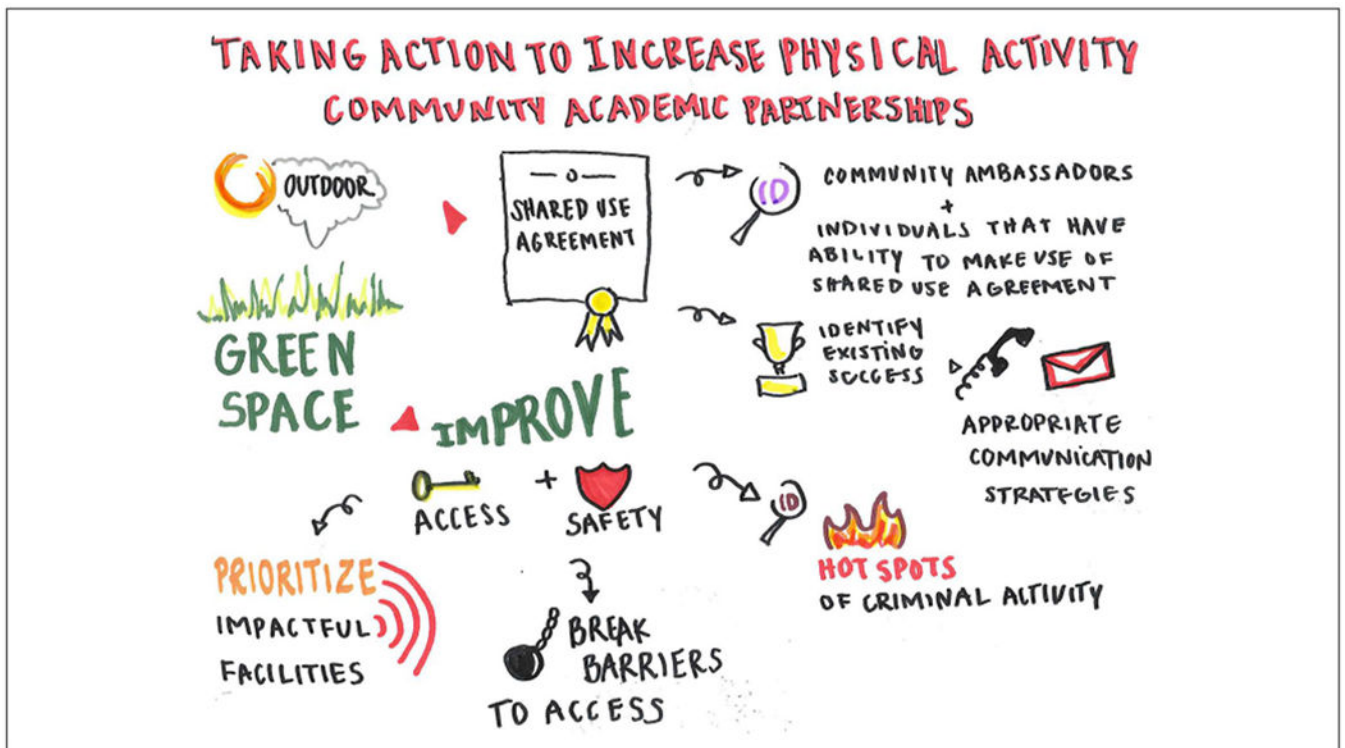 TAKING ACTION TO INCREASE PHYSICAL ACTIVITY
COMMUNITY ACADEMIC PARTNERSHIPS
OUTDOOR
GREEN
SPACE
SHARED USE
AGREEMENT
ID
COMMUNITY AMBASSADORS
+
INDIVIDUALS THAT HAVE
ABILITY TO MAKE USE OF
SHARED USE AGREEMENT
IDENTIFY
EXISTING
SUCCESS
APPROPRIATE
COMMUNICATION
STRATEGIES
IMPROVE
ACCESS
+
SAFETY
ID
HOT SPOTS
OF CRIMINAL ACTIVITY
PRIORITIZE
IMPACTFUL
FACILITIES
BREAK
BARRIERS
TO ACCESS